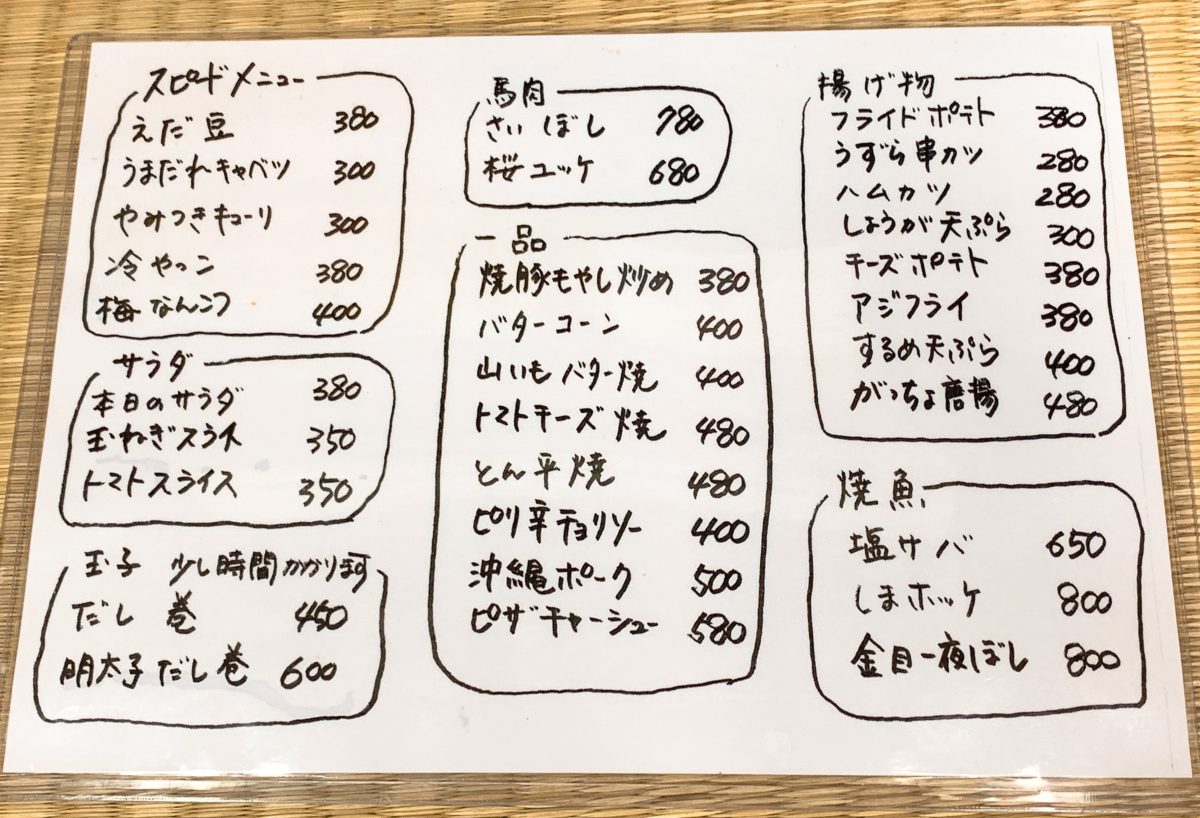 スピードメニュー
えだ豆 380
うまだれキャベツ 300
やみつきキューリ 300
冷やっこ 380
梅なんこつ 400
サラダ
本日のサラダ 380
玉ねぎスライス 350
トマトスライス 350
玉子 少し時間かかります
だし巻 450
明太子だし巻 600
馬肉
さいぼし 780
桜ユッケ 680
一品
焼豚もやし炒め 380
バターコーン 400
山いもバター焼 400
トマトチーズ焼 480
とん平焼 480
ピリ辛チョリソー 400
沖縄ポーク 500
ピザチャーシュー 580
揚げ物
フライドポテト 380
うずら串カツ 280
ハムカツ 280
しょうが天ぷら 300
チーズポテト 380
アジフライ 380
するめ天ぷら 400
がっちょ唐揚 480
焼魚
塩サバ 650
しまホッケ 800
金目一夜ぼし 800